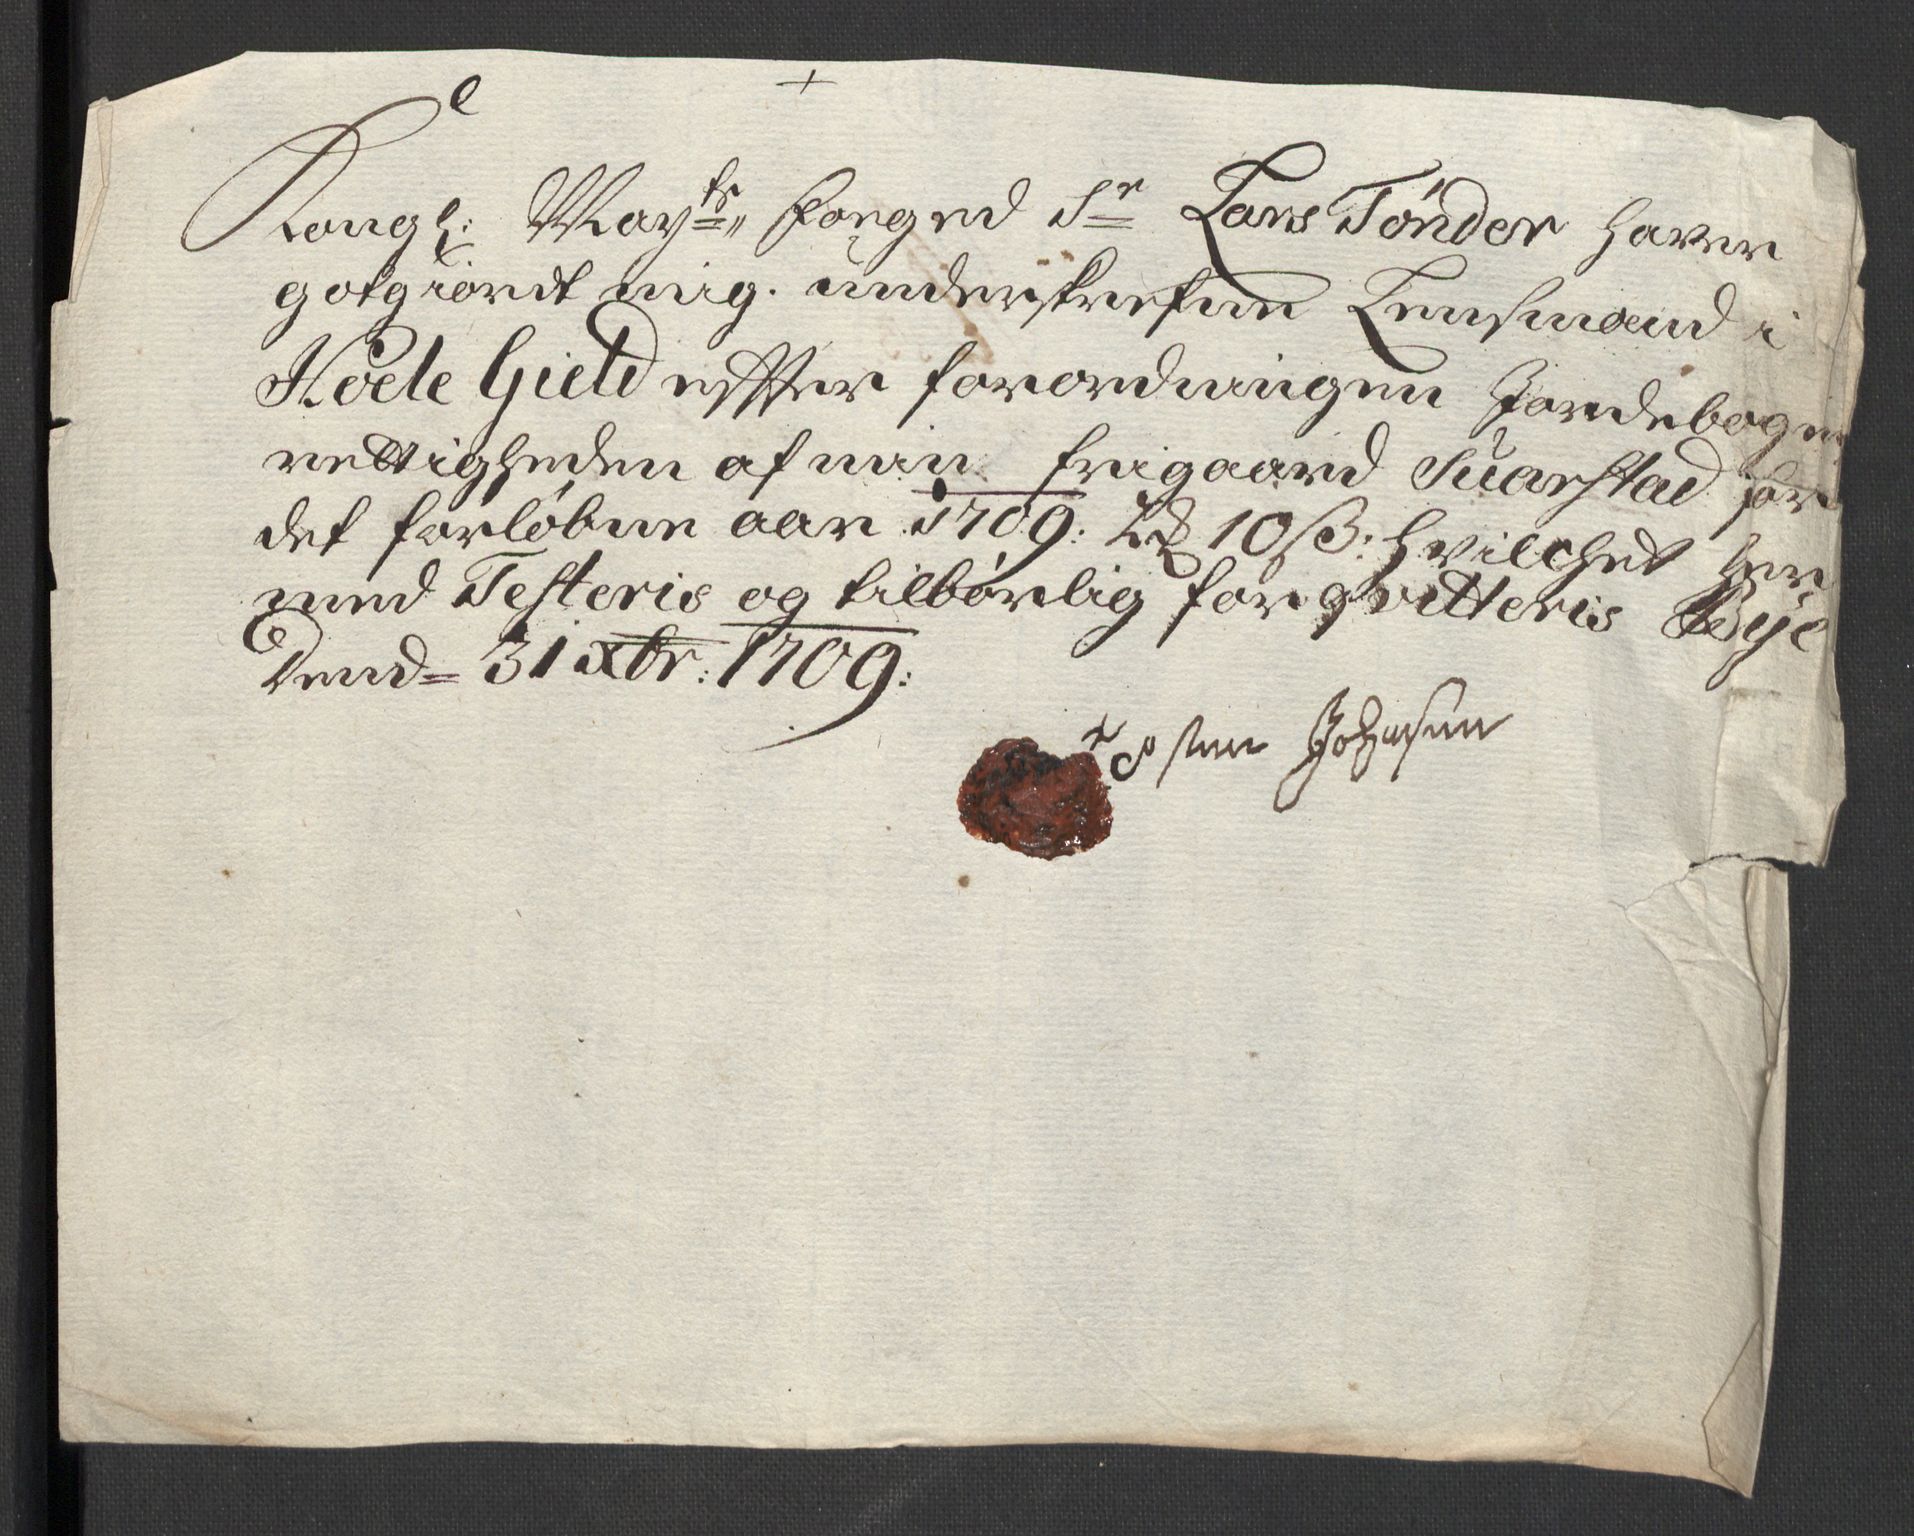 Kongl: Mayts Foged Sr Lars Tönder haver
gotgiordt mig underskrefne Lensmand i
Gield effter forordningen Jordebogen
rettigheden af min frigaard Suarstad for
det forløbne aar 1709: 10 ß: hvilchet her
med Testeris og tilbørlig for qvitteris Bye
Dend= 31 xbr: 1709:
Johnsen